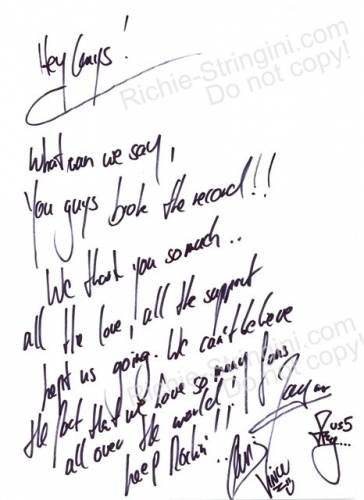 Hey Guys!
Richie-Stringini.com
Do not copy!
What can we say,
You guys broke the record!!
We thank you so much..
all the love, all the support
kept us going. We can't believe
the fact that we have so many fans
all over the world!
keep Rockin'!!
Vince